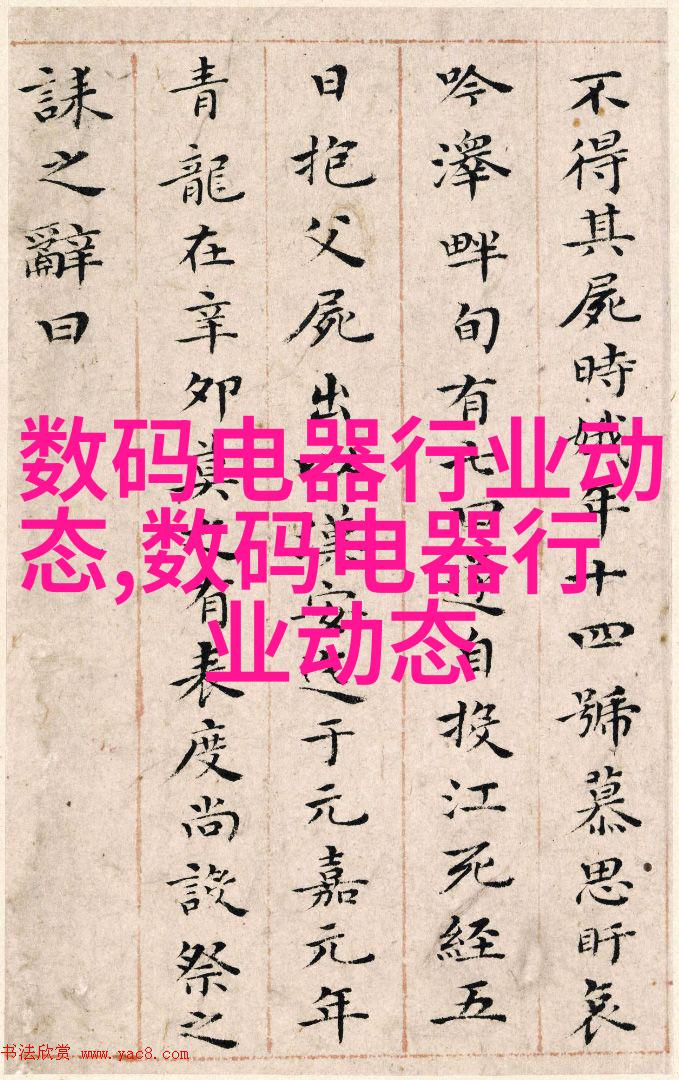 不得其屍時娥年十四號慕思盱哀
吟澤畔旬有七日自投江死經五
日抱父屍出以漢安于元嘉元年
青龍在辛卯莫之有表度尚設祭之
誄之辭曰
数码电器行业动
态,数码电器行
业动态
书法欣赏 www.yac8.com